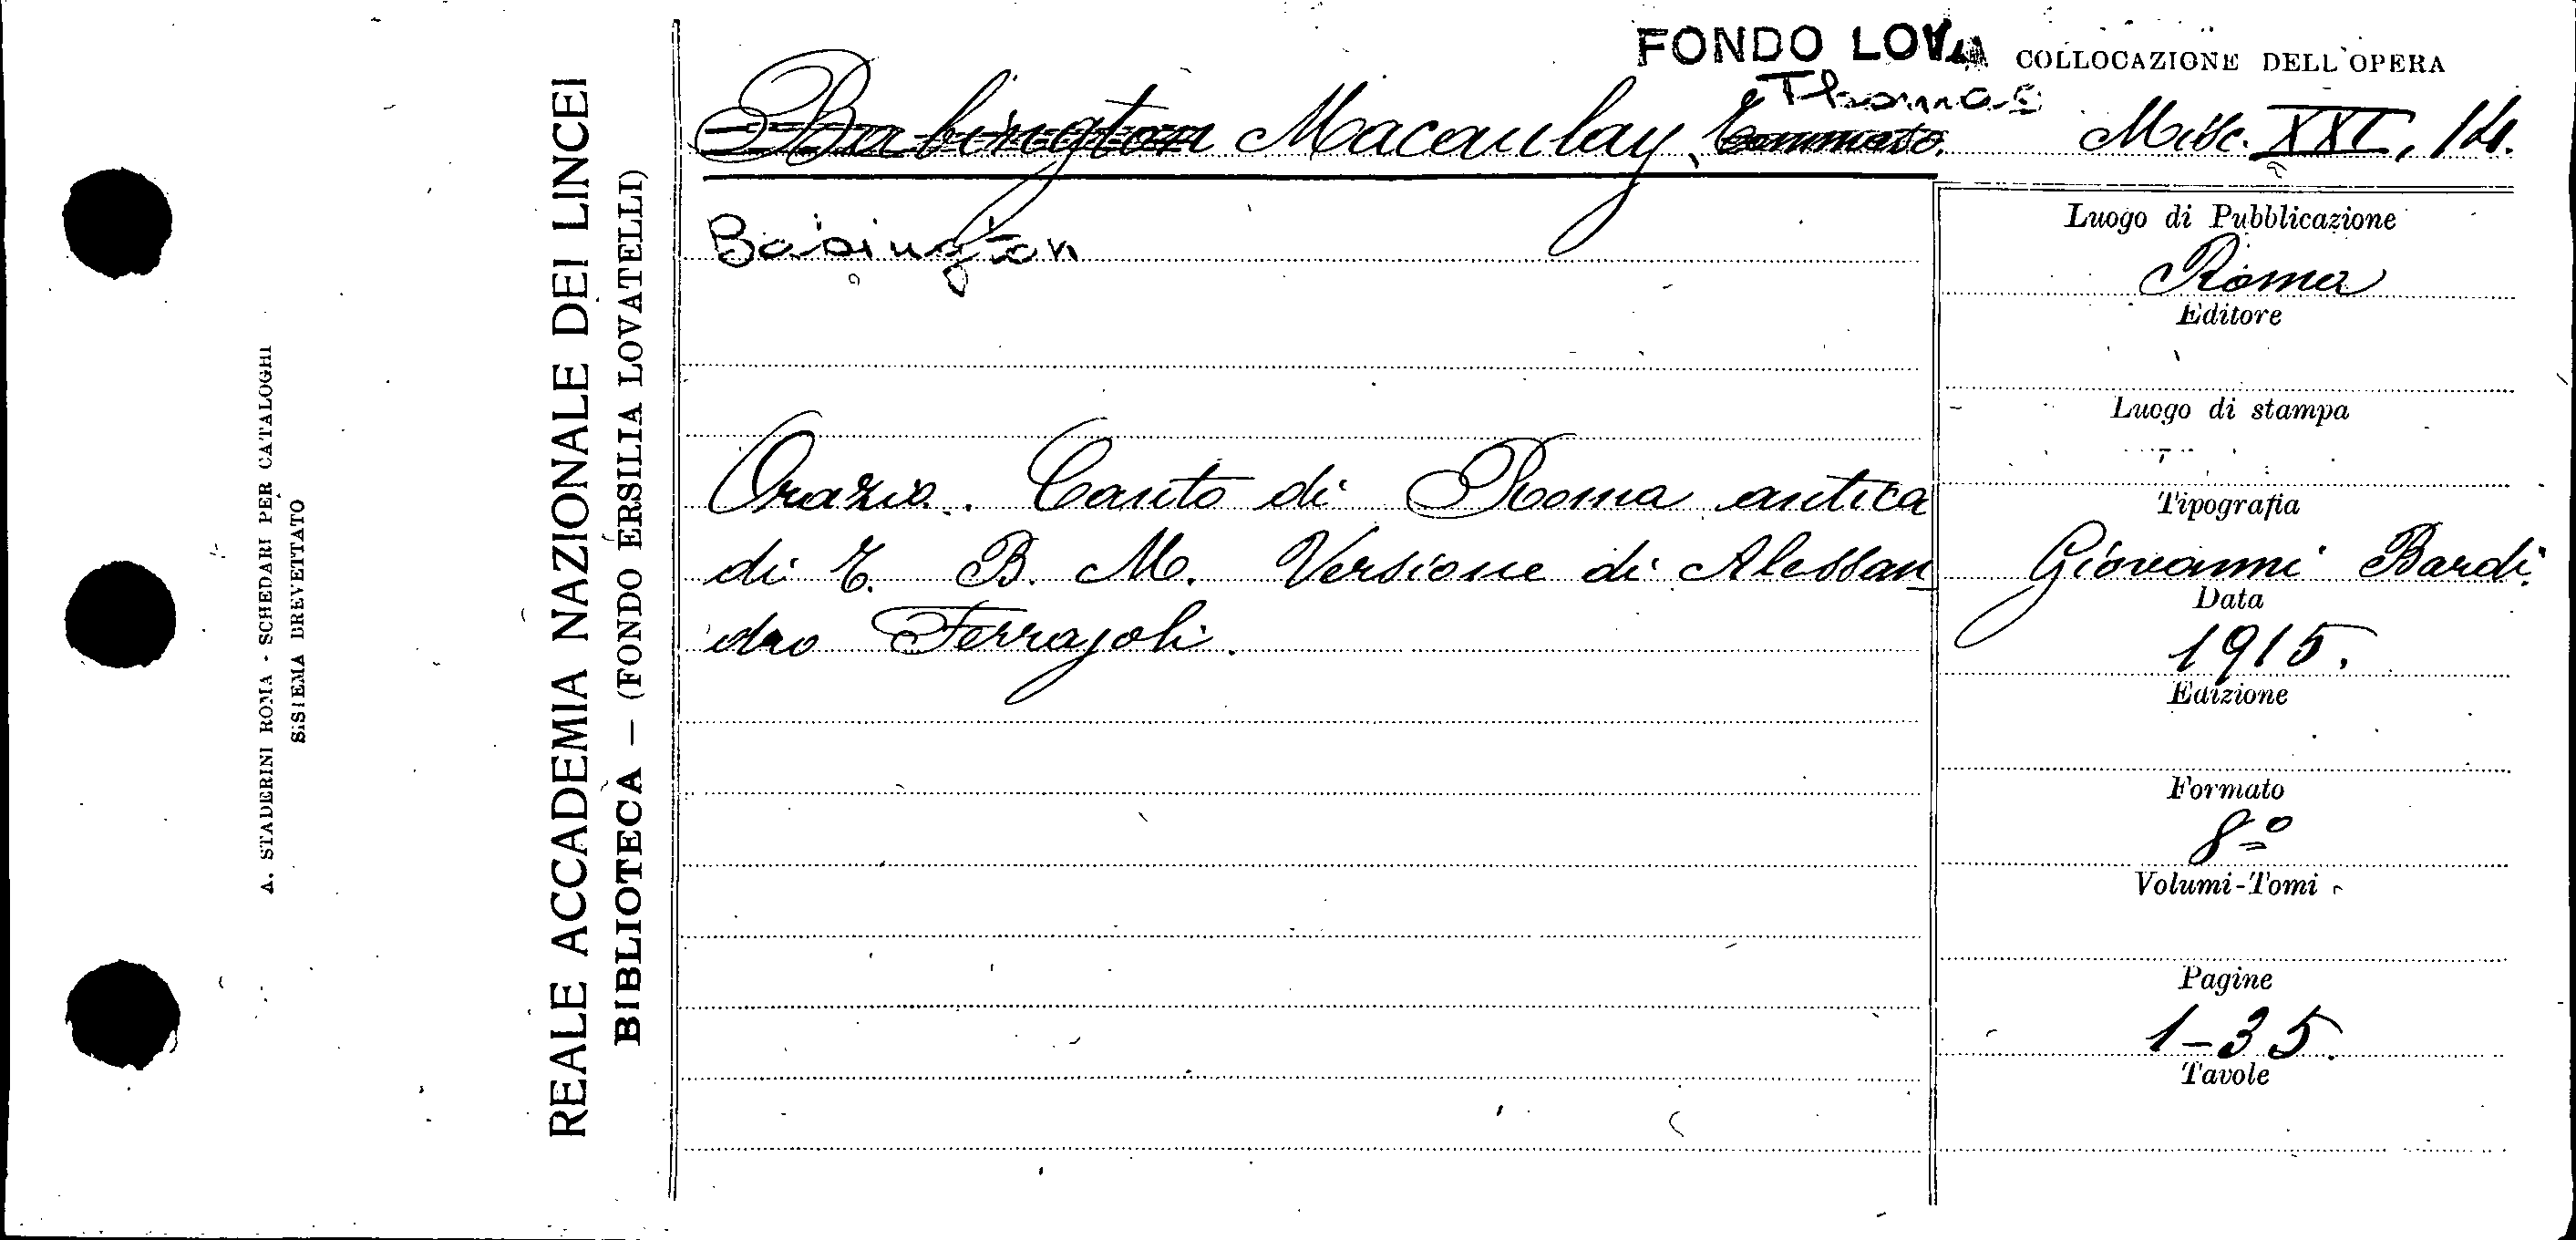 FONDO LOVA
COLLOCAZIONE DELL'OPERA
Thomas
Babington Macaulay, Tommaso.
Misc. XXI, 14.
Babington
Orazio. Canto di Roma antica
di T. B. M. Versione di Alessan
dro Ferrajoli.
Luogo di Pubblicazione
Roma
Editore
Luogo di stampa
Tipografia
Giovanni Bardi.
Data
1915.
Edizione
Formato
8º
Volumi-Tomi
Pagine
1-35.
Tavole
REALE ACCADEMIA NAZIONALE DEI LINCEI
BIBLIOTECA — (FONDO ERSILIA LOVATELLI)
A. STADERINI ROMA - SCHEDARI PER CATALOGHI
SISTEMA BREVETTATO